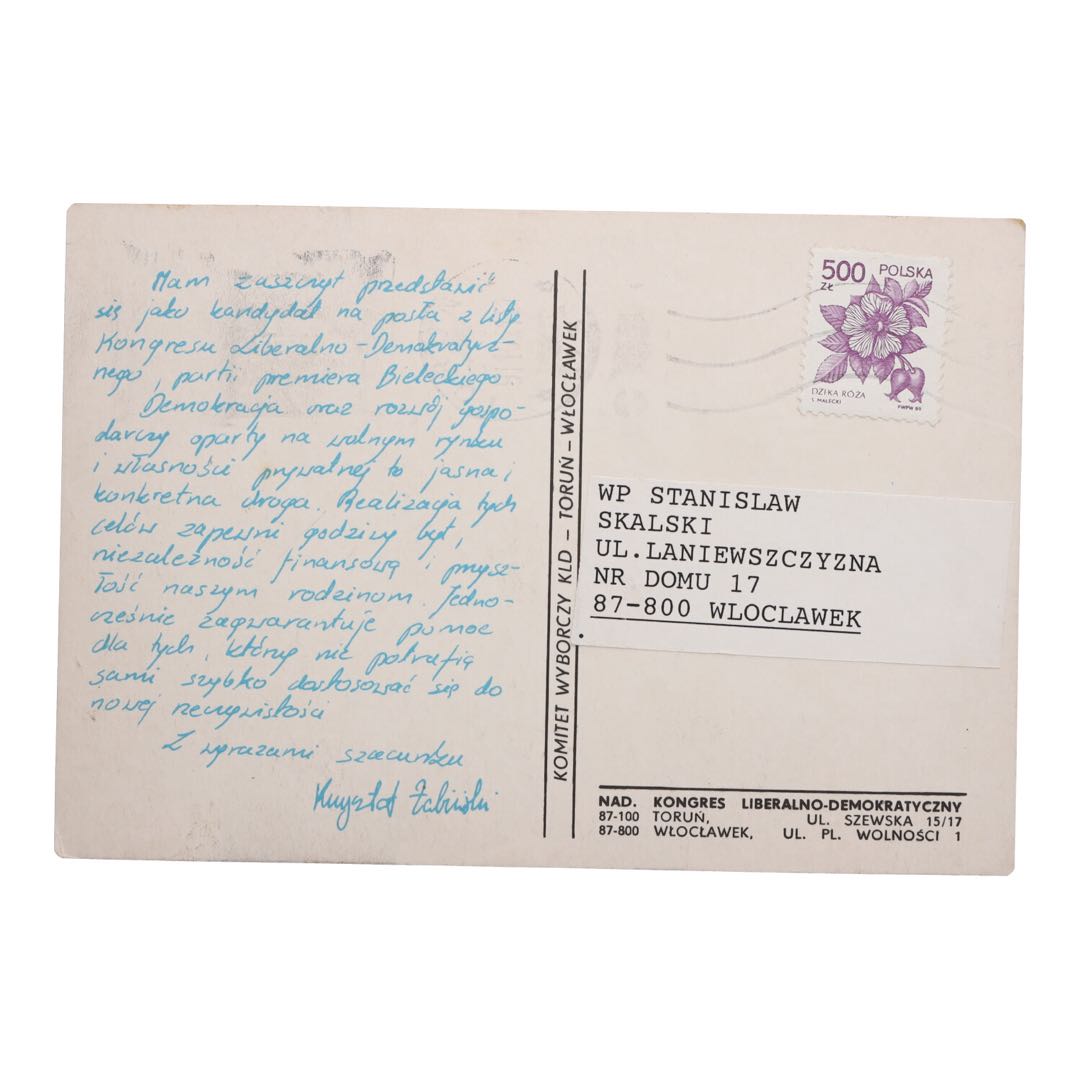 Mam zaszczyt przedstawić
się jako kandydat na posła z listy
Kongresu Liberalno-Demokratycz-
nego, partii premiera Bieleckiego.
Demokracja oraz rozwój gospo-
darczy oparty na wolnym rynku
i własności prywatnej to jasna i
konkretna droga. Realizacja tych
celów zapewni godziwy byt,
niezależność finansową i przysz-
łość naszym rodzinom. Jedno-
cześnie zagwarantuje pomoc
dla tych, którzy nie potrafią
sami szybko dostosować się do
nowej rzeczywistości
Z wyrazami szacunku
Krzysztof Żabiński
KOMITET WYBORCZY KLD – TORUŃ – WŁOCŁAWEK
500 POLSKA
ZŁ
DZIKA RÓŻA
S. MAŁECKI
PWPW 89
WP STANISLAW
SKALSKI
UL.LANIEWSZCZYZNA
NR DOMU 17
87-800 WLOCLAWEK
NAD. KONGRES LIBERALNO-DEMOKRATYCZNY
87-100 TORUŃ, UL. SZEWSKA 15/17
87-800 WŁOCŁAWEK, UL. PL. WOLNOŚCI 1